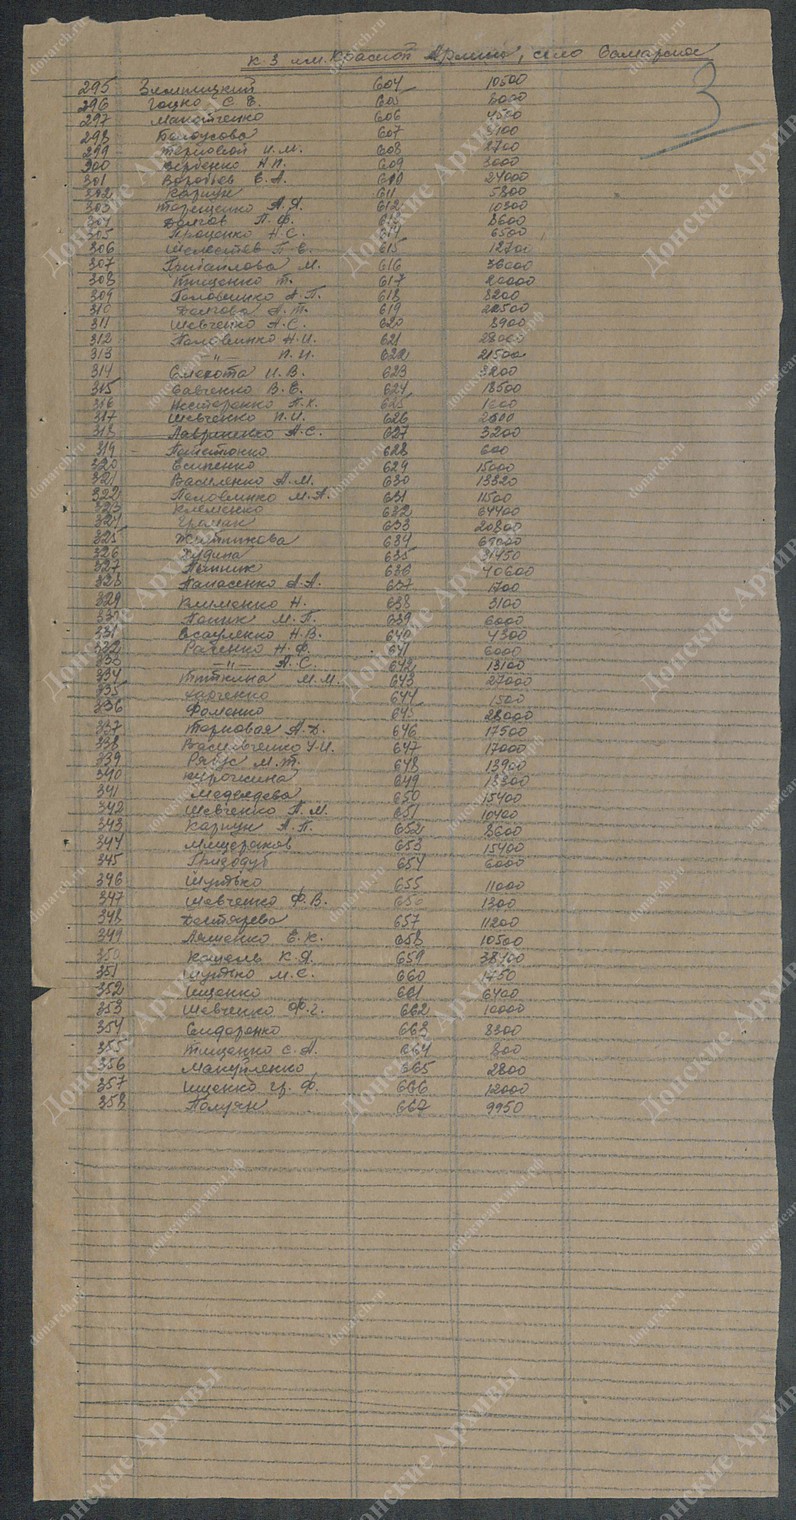 к-з им. Красной Армии, село Самарское
3
295 Злотницкий 604 10500
296 Гоцко С Е. 605 6000
297 Макотченко 606 4500
298 Белоусова 607 3100
299 Терновой И.М. 608 2700
300 Вербенко Н.П. 609 3000
301 Воробьев Е.А. 610 24000
302 Карпун 611 5800
303 Терещенко А.Я. 612 10300
304 Долгов П.Ф. 613 8600
305 Проценко Н.С. 614 6500
306 Шелестев Г.Е. 615 12700
307 М. 616 36000
308 Тищенко Т. 617 20000
309 Половинко А.П. 618 8200
310 Долгова А.Т. 619 22500
311 Шевченко А.С. 620 8900
312 Половинко Н.И. 621 28000
313 -"- П.И. 622 21500
314 Слепота И.В. 623 3200
315 Савченко В.Е. 624 18500
316 Нестеренко П.К. 625
317 Шевченко П.И. 626
318 Лавриненко А.С. 627 3200
319 628 600
320 Есипенко 629 15000
321 Василенко А.М. 630 13320
322 Половинко М.А. 631 11500
323 Клеменко 632 64400
324 Громак 633 20800
325 Житникова 634
326 Дудина 635 31450
327 636 40600
328 Панасенко А.А. 637 1700
329 Клименко Н. 638 3100
330 М.П. 639 6000
331 Есауленко Н.В. 640 4300
332 Раченко Н.Ф. 641 6000
333 -"- А.С. 642 13100
334 М.М. 643 27000
335 Харченко 644 1500
336 Фоменко 645 28000
337 Терновая А.Д. 646 17500
338 Васильченко У.И. 647 17000
339 Рябус М.Т. 648 13900
340 Курочкина 649 13300
341 Медведева 650 15400
342 Шевченко П.М. 651 10400
343 Карпун А.П. 652 8600
344 Мищеряков 653 15400
345 Гризодуб 654 6000
346 Шутько 655 11000
347 Шевченко Ф.В. 656 1300
348 Дегтярева 657 11200
349 Ляшенко Е.К. 658 10500
350 Кошель К.Я. 659
351 Шутько М.С. 660 1750
352 Ищенко 661 6400
353 Шевченко Ф.Г. 662 10000
354 Сидоренко 663 8300
355 Тищенко С.А. 664 800
356 Мануйленко 665 2800
357 Ищенко Гр. Ф. 666 12000
358 Полуян 667 9950
Донские Архивы
donarch.ru
донскиеархивы.рф